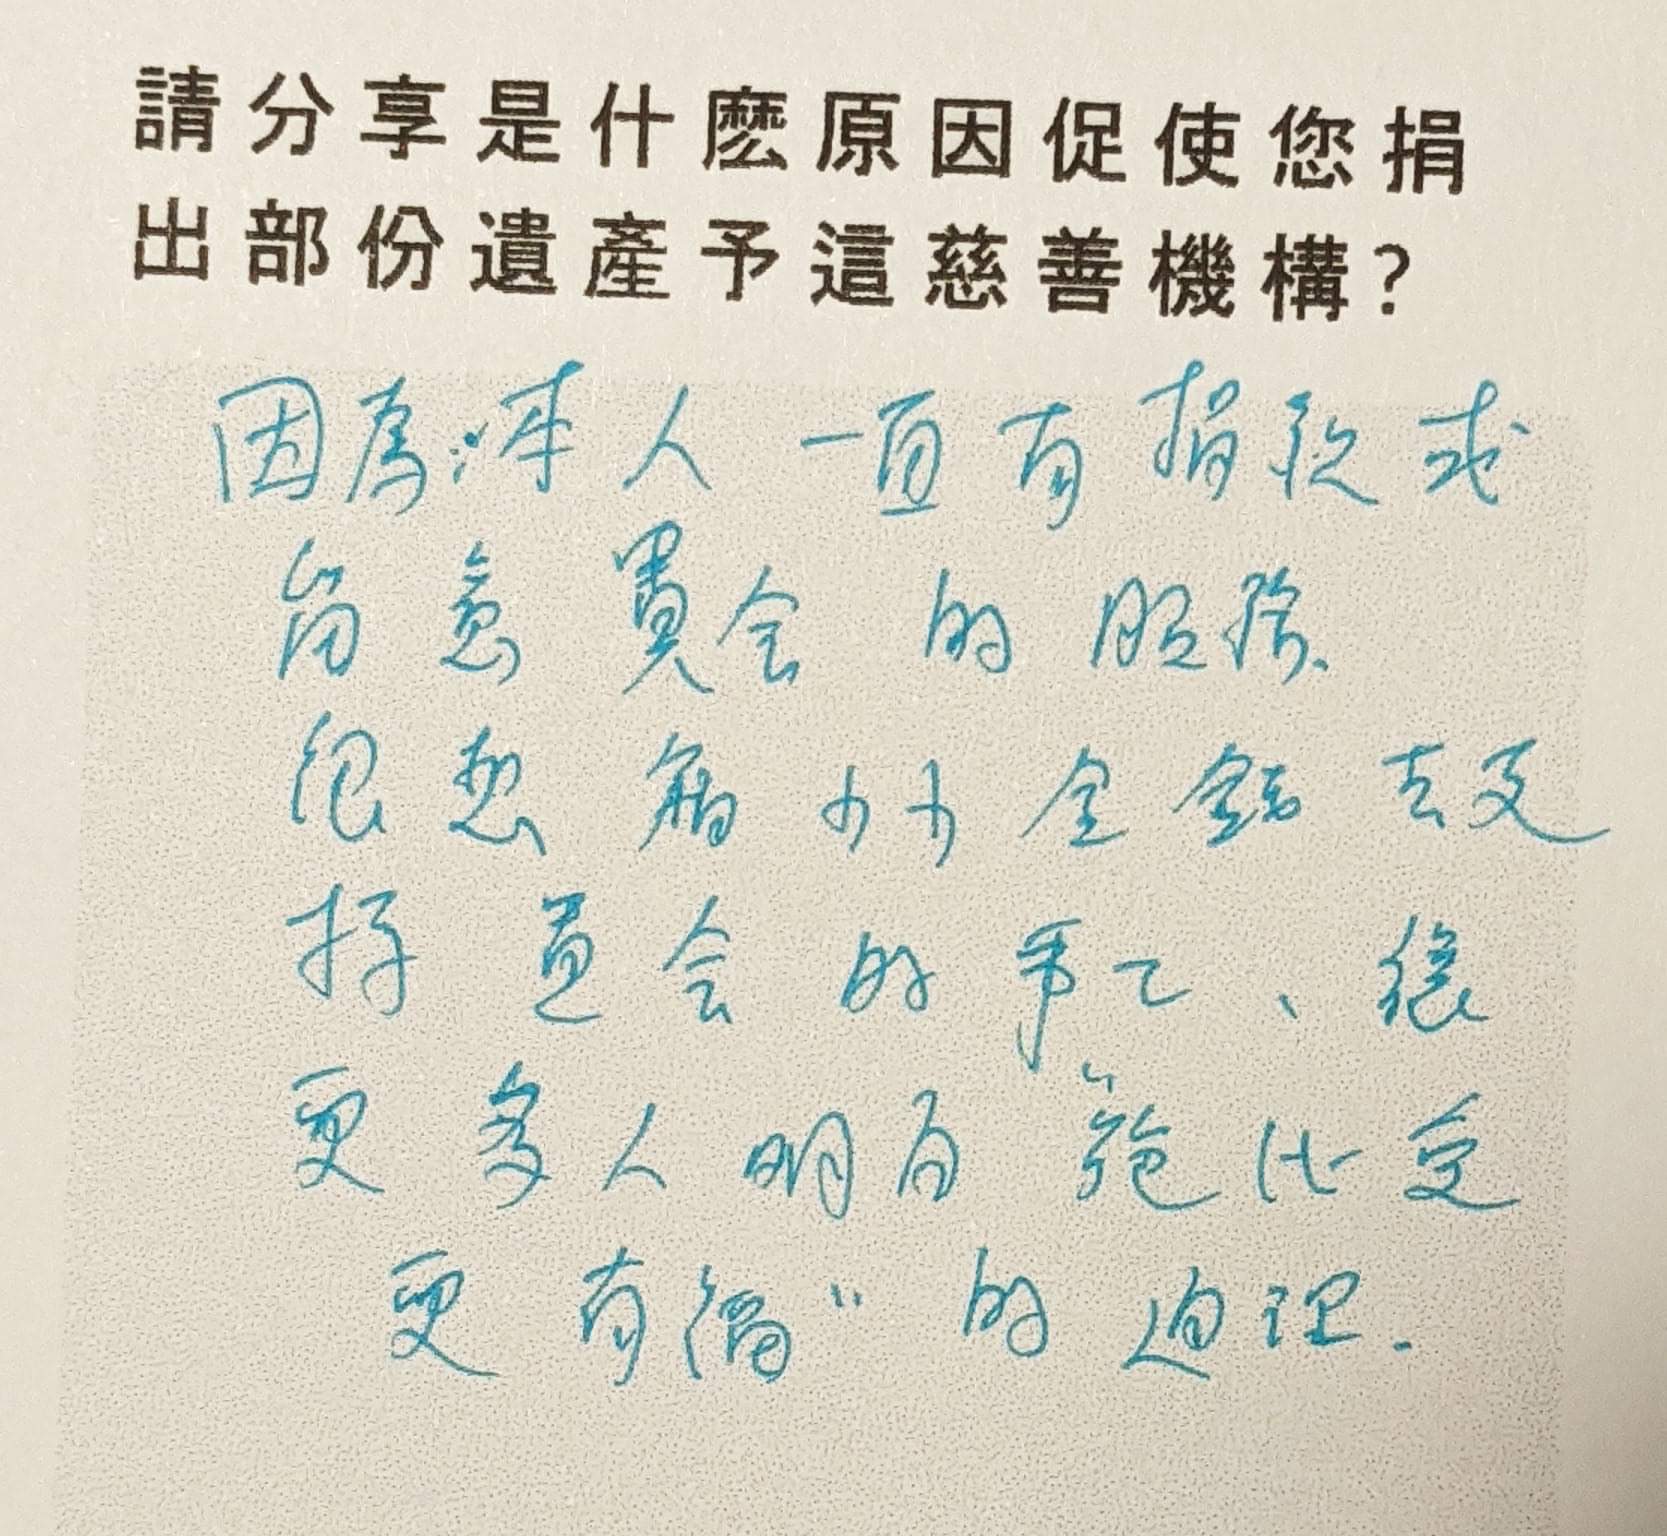 請分享是什麽原因促使您捐
出部份遺產予這慈善機構?
因為:本人一直有捐款或
留意貴会的服務、
很想藉少少金錢去支
持貴会的事工、讓
更多人明白"施比受
更有福"的道理.